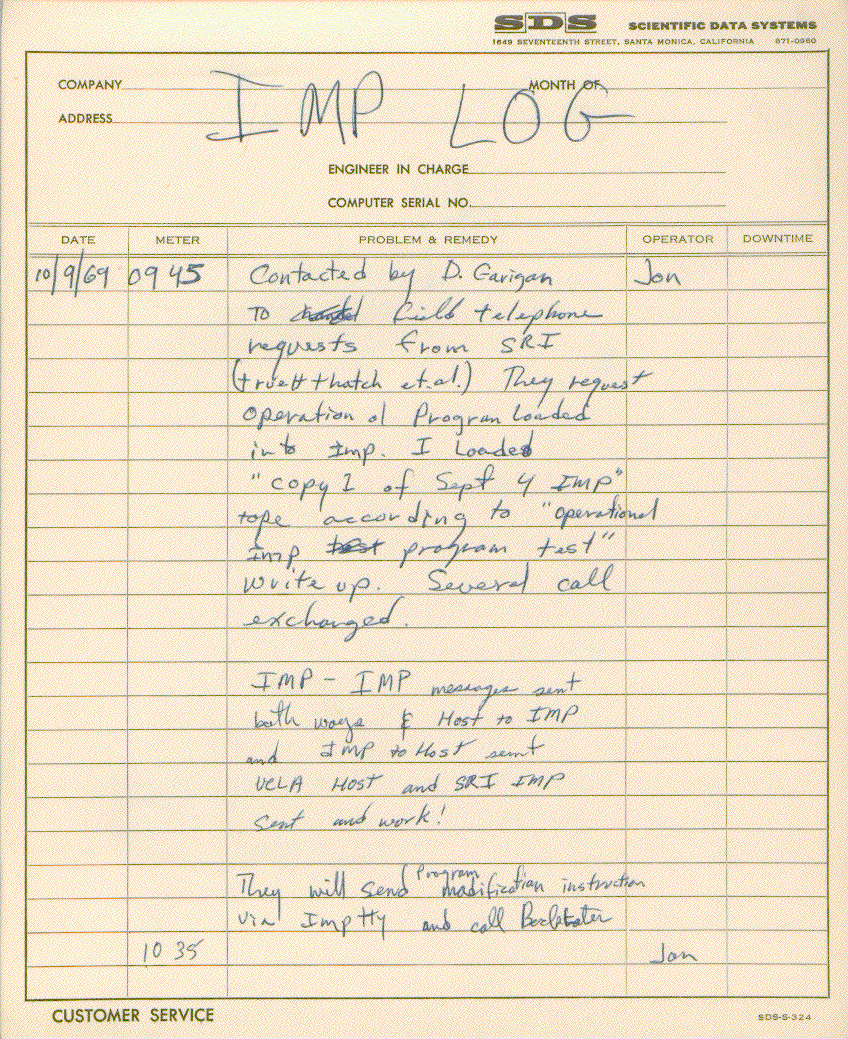 SDS SCIENTIFIC DATA SYSTEMS
1649 SEVENTEENTH STREET, SANTA MONICA, CALIFORNIA 871-0960
COMPANY MONTH OF
IMP LOG
ADDRESS
ENGINEER IN CHARGE
COMPUTER SERIAL NO.
DATE METER PROBLEM & REMEDY OPERATOR DOWNTIME
10/9/69 0945 Contacted by D. Garigan Jon
To field telephone
requests from SRI
(truett thatch et.al.) They request
operation of Program loaded
into Imp. I Loaded
"copy 1 of Sept 4 IMP"
tape according to "operational
Imp test program test"
write up. Several call
exchanged.
IMP - IMP messages sent
both ways & Host to IMP
and IMP to Host sent
UCLA Host and SRI IMP
sent and work!
They will send Program modification instruction
via Imp tty and call Back later
10 35 Jon
CUSTOMER SERVICE SDS-S-324